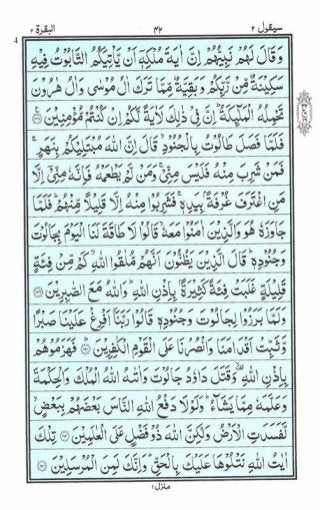 سیقول ۲ ۴۲ البقرة ۲
وَقَالَ لَهُمْ نَبِیُّهُمْ اِنَّ اٰیَةَ مُلْكِهٖۤ اَنْ یَّاْتِیَكُمُ التَّابُوْتُ فِیْهِ
سَكِیْنَةٌ مِّنْ رَّبِّكُمْ وَبَقِیَّةٌ مِّمَّا تَرَكَ اٰلُ مُوْسٰی وَاٰلُ هٰرُوْنَ
تَحْمِلُهُ الْمَلٰٓىِٕكَةُ ؕ اِنَّ فِیْ ذٰلِكَ لَاٰیَةً لَّكُمْ اِنْ كُنْتُمْ مُّؤْمِنِیْنَ
فَلَمَّا فَصَلَ طَالُوْتُ بِالْجُنُوْدِ ۙ قَالَ اِنَّ اللّٰهَ مُبْتَلِیْكُمْ بِنَهَرٍ ۚ
فَمَنْ شَرِبَ مِنْهُ فَلَیْسَ مِنِّیْ ۚ وَمَنْ لَّمْ یَطْعَمْهُ فَاِنَّهٗ مِنِّیْۤ اِلَّا
مَنِ اغْتَرَفَ غُرْفَةًۢ بِیَدِهٖ ۚ فَشَرِبُوْا مِنْهُ اِلَّا قَلِیْلًا مِّنْهُمْ ؕ فَلَمَّا
جَاوَزَهٗ هُوَ وَالَّذِیْنَ اٰمَنُوْا مَعَهٗ ۙ قَالُوْا لَا طَاقَةَ لَنَا الْیَوْمَ بِجَالُوْتَ
وَجُنُوْدِهٖ ؕ قَالَ الَّذِیْنَ یَظُنُّوْنَ اَنَّهُمْ مُّلٰقُوا اللّٰهِ ۙ كَمْ مِّنْ فِئَةٍ
قَلِیْلَةٍ غَلَبَتْ فِئَةً كَثِیْرَةًۢ بِاِذْنِ اللّٰهِ ؕ وَاللّٰهُ مَعَ الصّٰبِرِیْنَ
وَلَمَّا بَرَزُوْا لِجَالُوْتَ وَجُنُوْدِهٖ قَالُوْا رَبَّنَاۤ اَفْرِغْ عَلَیْنَا صَبْرًا
وَّثَبِّتْ اَقْدَامَنَا وَانْصُرْنَا عَلَی الْقَوْمِ الْكٰفِرِیْنَ ؕ فَهَزَمُوْهُمْ
بِاِذْنِ اللّٰهِ ۙ وَقَتَلَ دَاوٗدُ جَالُوْتَ وَاٰتٰىهُ اللّٰهُ الْمُلْكَ وَالْحِكْمَةَ
وَعَلَّمَهٗ مِمَّا یَشَآءُ ؕ وَلَوْلَا دَفْعُ اللّٰهِ النَّاسَ بَعْضَهُمْ بِبَعْضٍ ۙ
لَّفَسَدَتِ الْاَرْضُ وَلٰكِنَّ اللّٰهَ ذُوْ فَضْلٍ عَلَی الْعٰلَمِیْنَ تِلْكَ
اٰیٰتُ اللّٰهِ نَتْلُوْهَا عَلَیْكَ بِالْحَقِّ ؕ وَاِنَّكَ لَمِنَ الْمُرْسَلِیْنَ
منزل ۱